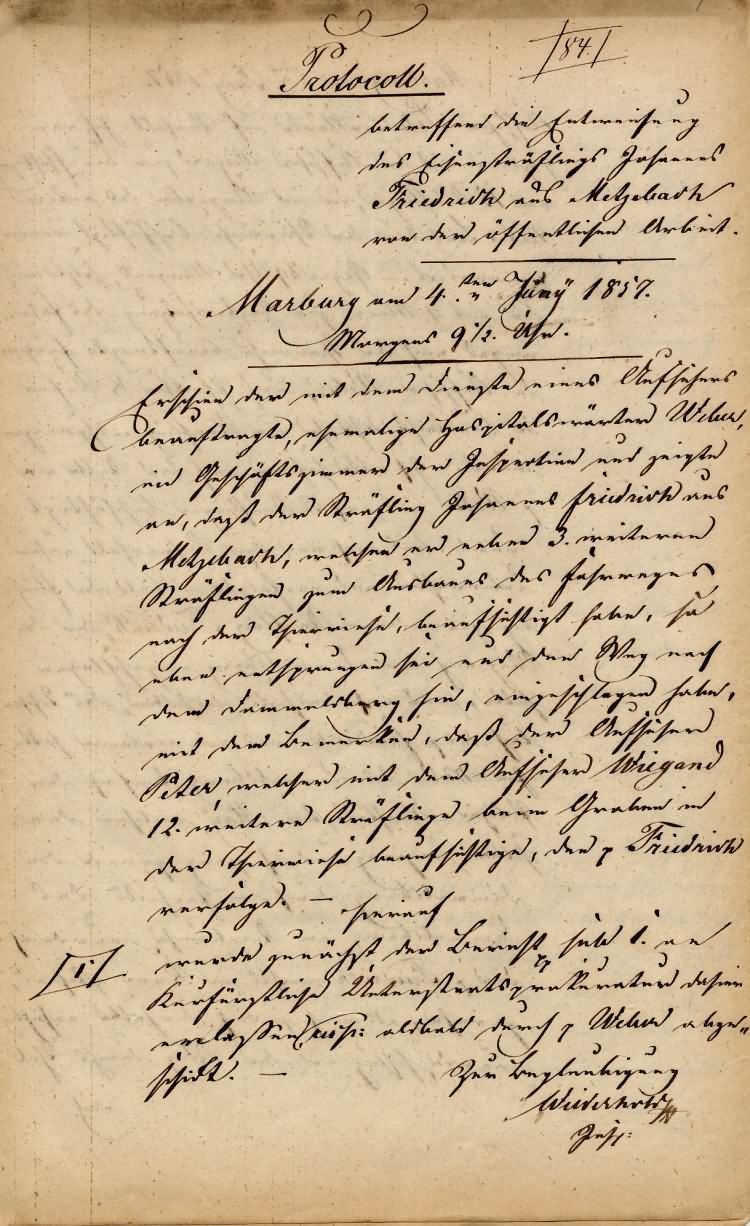 [84]
Protocoll.
betreffend die Entweichung
des Eisensträflings Johannes
Friedrich aus Metzebach
von der öffentlichen Arbeit.
Marburg am 4.ten Juny 1857.
Morgens 9 1/2. Uhr.
Erschien der mit dem Dienste eines Aufsehers
beauftragte, ehemalige Hospitalswärter Weber,
im Geschäftszimmer der Inspection und zeigte
an, daß der Sträfling Johannes Friedrich aus
Metzebach, welchen er neben 3. weiteren
Sträflingen zum Ausbaues des Fahrweges
nach der Thierwiese, beaufsichtigt habe, so
eben entsprungen sei und den Weg nach
dem Dammelsberg hin, eingeschlagen habe,
mit dem Bemerken, daß der Aufseher
Peter, welcher mit dem Aufseher Wiegand
12. weitere Sträflinge beim Graben in
der Thierwiese beaufsichtige, den p Friedrich
verfolge. — Hierauf
[1] wurde zunächst der Bericht sub 1. an
Kurfürstliche Unterstaatsprokuratur dahier
erlassen, resp: alsbald durch p Weber abge-
schickt. —
Zur Beglaubigung
Wiederhold
Insp: